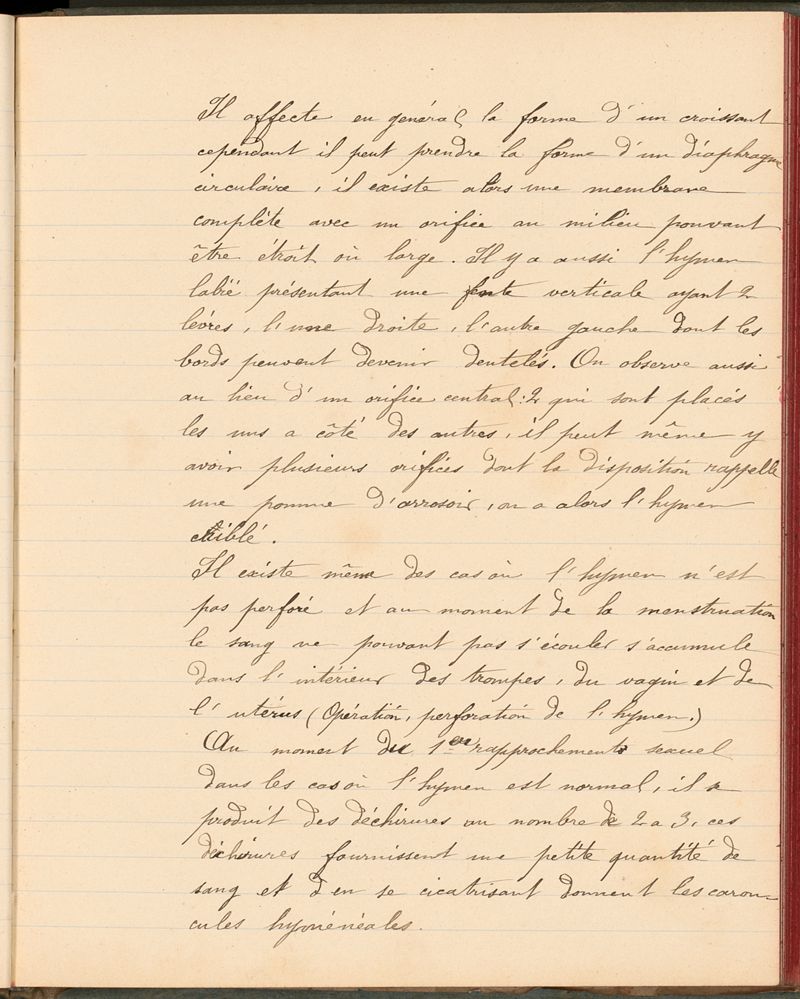 Il affecte en général la forme d'un croissant
cependant il peut prendre la forme d'un diaphragme
circulaire, il existe alors une membrane
complète avec un orifice au milieu pouvant
être étroit où large. Il y a aussi l'hymen
labié présentant une fente verticale ayant 2
lèvres, l'une droite, l'autre gauche dont les
bords peuvent devenir dentelés. On observe aussi
au lieu d'un orifice central : 2 qui sont placés
les uns a côté des autres, il peut même y
avoir plusieurs orifices dont la disposition rappelle
une pomme d'arrosoir, on a alors l'hymen
criblé.
Il existe même des cas où l'hymen n'est
pas perforé et au moment de la menstruation
le sang ne pouvant pas s'écouler s'accumule
dans l'intérieur des trompes, du vagin et de
l'utérus (Opération, perforation de l'hymen.)
Au moment du 1er rapprochement sexuel
dans les cas où l'hymen est normal, il se
produit des déchirures au nombre de 2 a 3, ces
déchirures fournissent une petite quantité de
sang et d'en se cicatrisant donnent les caron-
cules hyménéales.